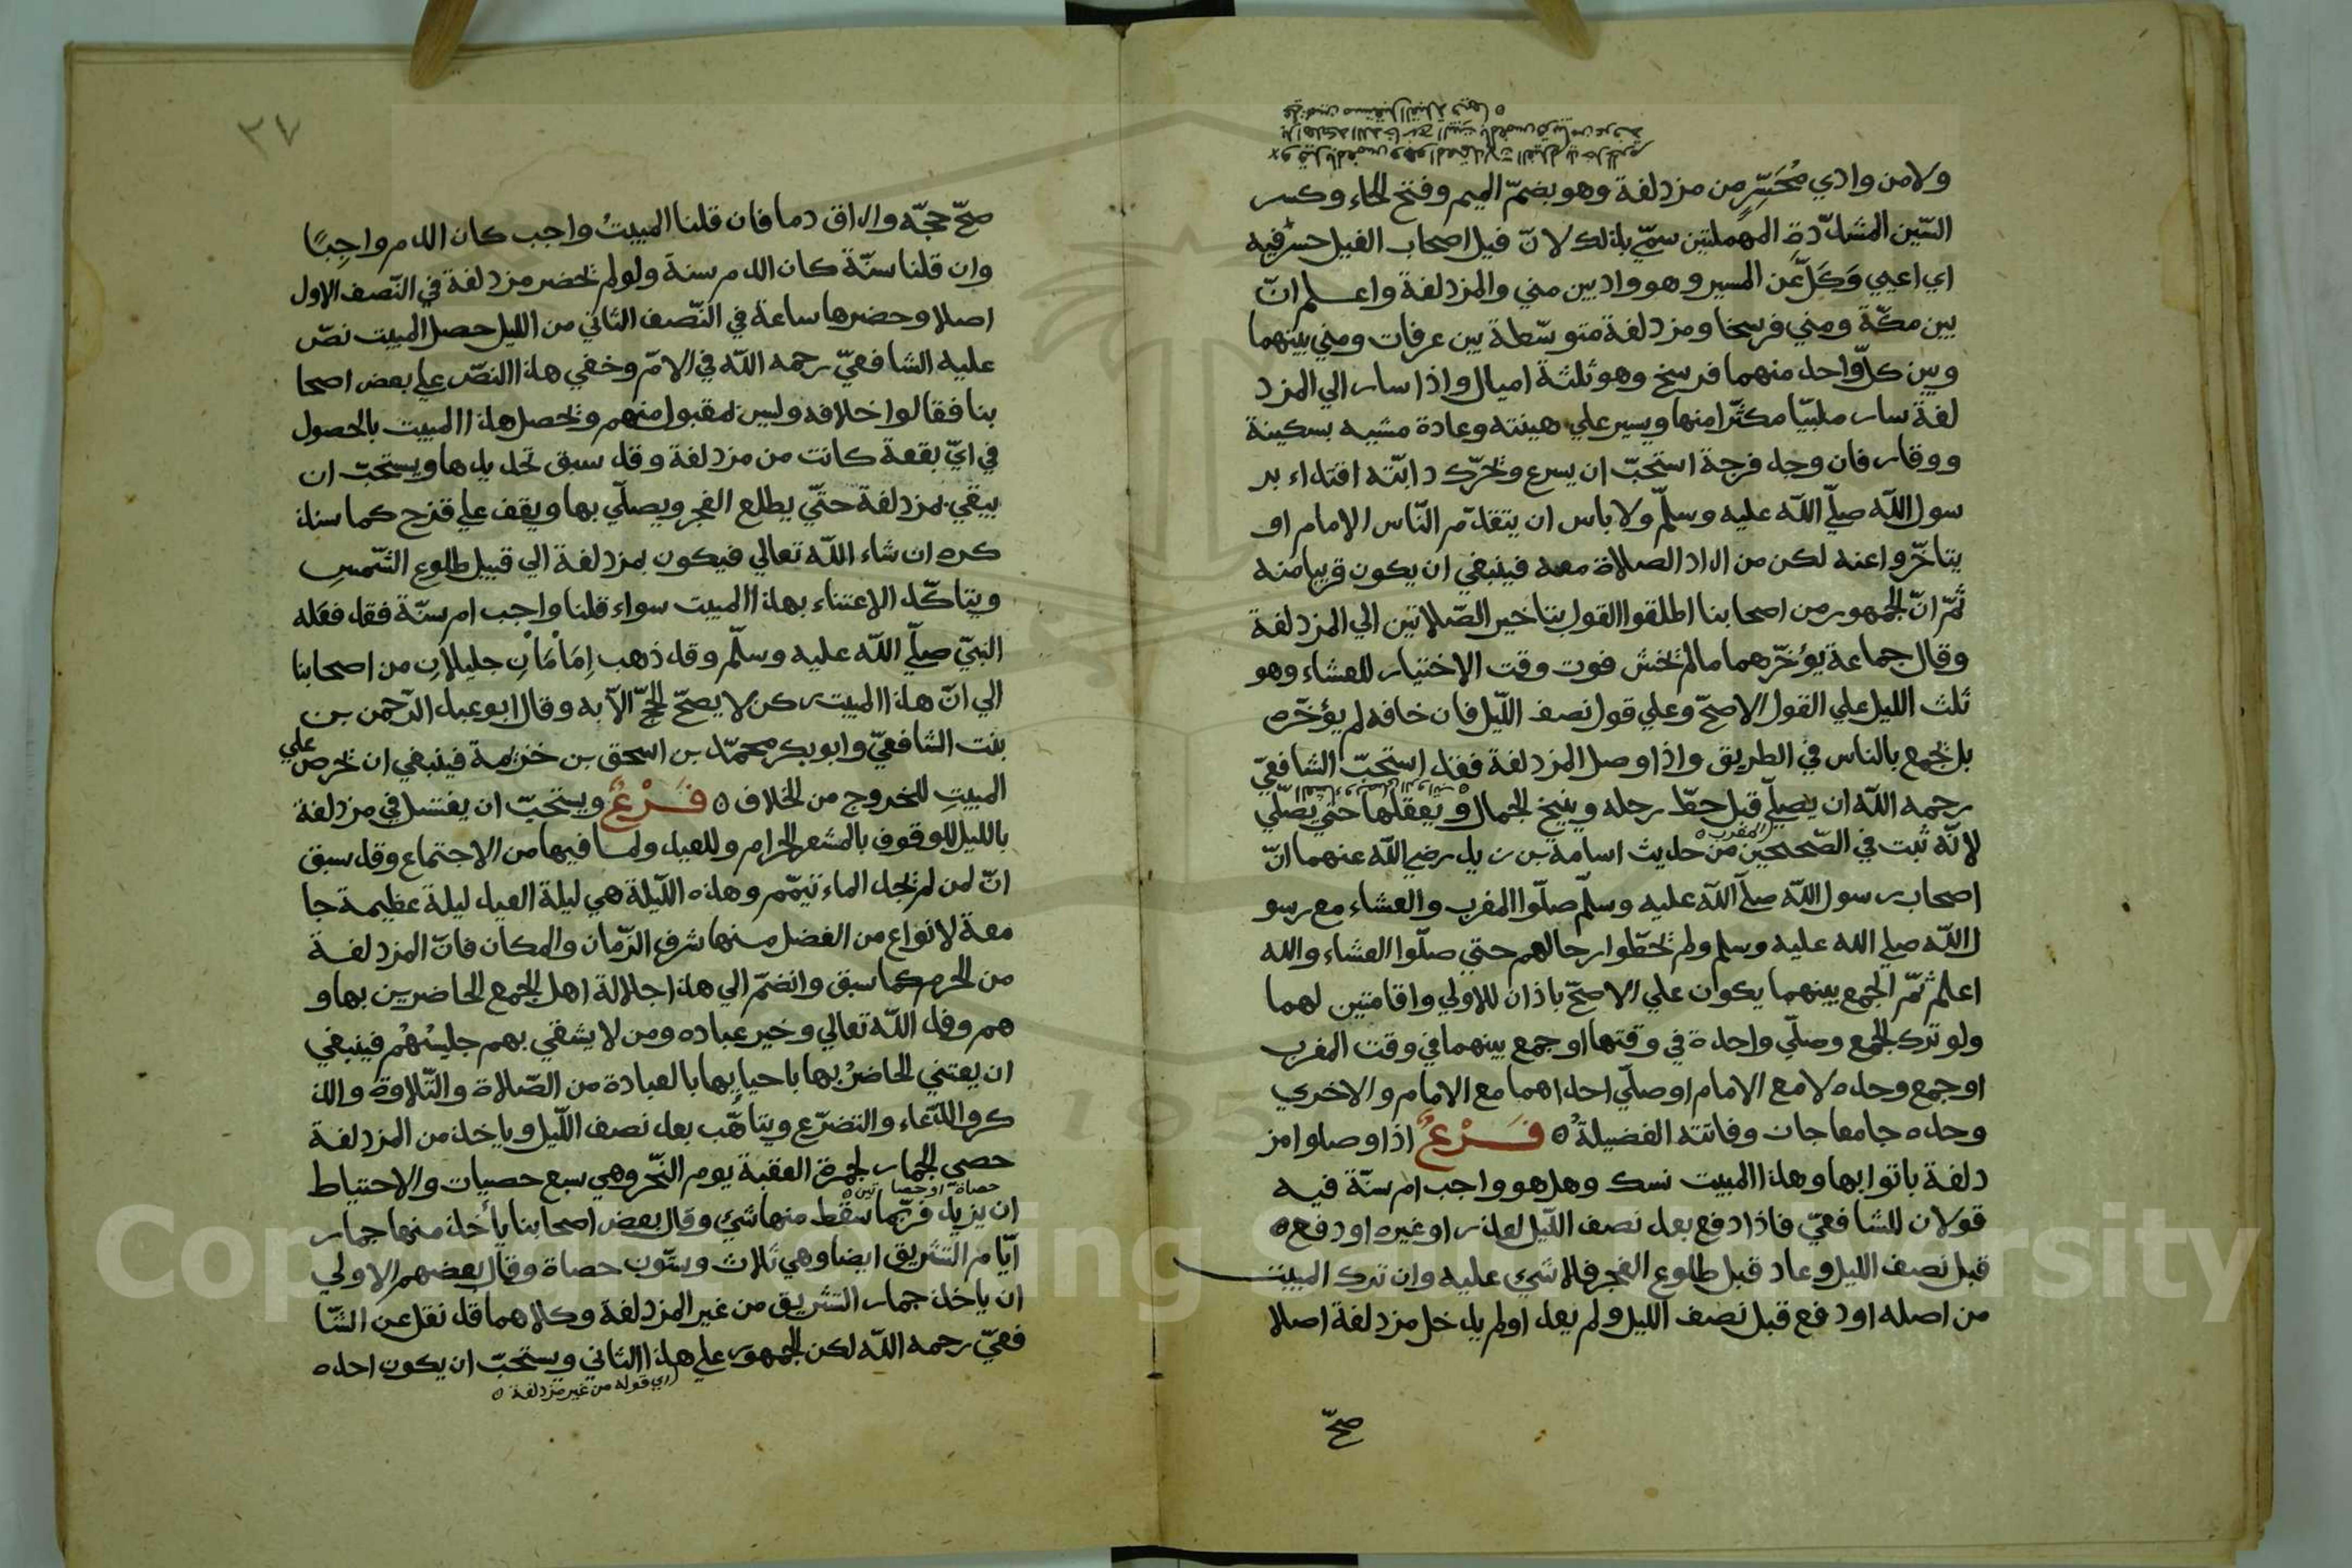 ولا من وادي مُحَسِّرٍ من مزدلفة وهو بضمّ الميم وفتح الحاء وكسر
السّين المشدّدة المهملتين سمّي بذلك لانّ فيل اصحاب الفيل حسر فيه
اي اعيي وَكَلَّ عَن المسير وهو واد بين مني والمزدلفة واعلم انّ
بين مكّة ومني فرسخا ومزدلفة متوسّطة بين عرفات ومني بينهما
وبين كلّ واحد منهما فرسخ وهو ثلثة اميال واذا سار الي المزد
لفة سار ملبيّا مكثّرا منها ويسير علي هينته وعادة مشيه بسكينة
ووقار فان وجد فرجة استحبّ ان يسرع ويحرّك دابّته اقتداء بر
سول اللّه صلّي اللّه عليه وسلّم ولا باس ان يتقدّم النّاس الامام او
يتاخّروا عنه لكن من اراد الصلاة معه فينبغي ان يكون قريبا منه
ثمّ انّ الجمهور من اصحابنا اطلقوا القول بتاخير الصّلاتين الي المزدلفة
وقال جماعة يؤخّرهما ما لم يخش فوت وقت الاختيار للعشاء وهو
ثلث الليل علي القول الاصحّ وعلي قول نصف اللّيل فان خافه لم يؤخّره
بل يجمع بالناس في الطريق واذا وصل المزدلفة فقد استحبّ الشافعيّ
رحمه اللّه ان يصلّي قبل حطّ رحله وينيخ الجمال ويعقلها حتي يصلّي
لانّه ثبت في الصّحيحين من حديث اسامة بن زيد رضي اللّه عنهما انّ
المغرب
اصحاب رسول اللّه صلّي اللّه عليه وسلّم صلّوا المغرب والعشاء مع رسو
ل اللّه صلي الله عليه وسلم ولم يحطّوا رحالهم حتي صلّوا العشاء والله
اعلم ثمّ الجمع بينهما يكون علي الاصحّ باذان للاولي واقامتين لهما
ولو ترك الجمع وصلّي واحدة في وقتها او جمع بينهما في وقت المغرب
او جمع وحده لا مع الامام او صلّي احداهما مع الامام والاخري
وحده جامعا جاز وفاتته الفضيلةُ ه فَرْعٌ اذا وصلوا مز
دلفة باتوا بها وهذا المبيت نسك وهل هو واجب ام سنّة فيه
قولان للشافعيّ فاذا دفع بعد نصف اللّيل لعذر او غيره او دفع ه
قبل نصف الليل وعاد قبل طلوع الفجر فلا شيء عليه وان ترك المبيت
من اصله او دفع قبل نصف الليل ولم يعد او لم يدخل مزدلفة اصلا
صحّ
٣٧
صحّ حجّه واراق دما فان قلنا المبيتُ واجب كان الدم واجِبًا
وان قلنا سنّة كان الدم سنة ولو لم يحضر مزدلفة في النّصف الاول
اصلا وحضرها ساعة في النّصف الثاني من الليل حصل المبيت نصّ
عليه الشافعيّ رحمه اللّه في الامّ وخفي هذا النصّ علي بعض اصحا
بنا فقالوا خلافه وليس بمقبول منهم ويحصل هذا المبيت بالحصول
في ايّ بقعة كانت من مزدلفة وقد سبق تحديدها ويستحبّ ان
يبقي بمزدلفة حتّي يطلع الفجر ويصلّي بها ويقف علي قزح كما سنذ
كره ان شاء اللّه تعالي فيكون بمزدلفة الي قبيل طلوع الشّمسِ
ويتاكّد الاعتناء بهذا المبيت سواء قلنا واجب ام سنّة فقد فعله
النبيّ صلّي اللّه عليه وسلّم وقد ذهب اِمَامَانِ جليلانِ من اصحابنا
الي انّ هذا المبيت ركن لا يصحّ الحجّ الاّ به وقال ابو عبد الرّحمن بن
بنت الشافعيّ وابو بكر محمّد بن اسحق بن خزيمة فينبغي ان يحرص علي
المبيتِ للخروج من الخلاف ه فَرْعٌ ويستحبّ ان يغتسل في مزدلفة
بالليل للوقوف بالمشعر الحرام وللعيد ولما فيها من الاجتماع وقد سبق
انّ لمن لم يجد الماء تيمّم وهذه اللّيلة هي ليلة العيد ليلة عظيمة جا
معة لانواع من الفضل منها شرف الزّمان والمكان فانّ المزدلفة
من الحرم كما سبق وانضمّ الي هذا جلالة اهل الجمع الحاضرين بها و
هم وفد اللّه تعالي وخير عباده ومن لا يشقي بهم جليسُهُم فينبغي
ان يعتني الحاضرُ بها باحيايها بالعبادة من الصّلاة والتّلاوة والذ
كر والدّعاء والتضرّع ويتاهّب بعد نصف اللّيل وياخذ من المزدلفة
حصي الجمار لجمرة العقبة يوم النّحر وهي سبع حصيات والاحتياط
حصاة او حصاتين ه
ان يزيد فربّما سقط منها شيء وقال بعض اصحابنا يأخذ منها جمار
ايّام التشريق ايضا وهي ثلاث وستّون حصاة وقال بعضهم الاولي
ان ياخذ جمار التشريق من غير المزدلفة وكلاهما قد نقل عن الشّا
فعيّ رحمه اللّه لكن الجمهور علي هذا الثاني ويستحبّ ان يكون احده
اي قوله من غير مزدلفة ه
Copyright © King Saud University
195